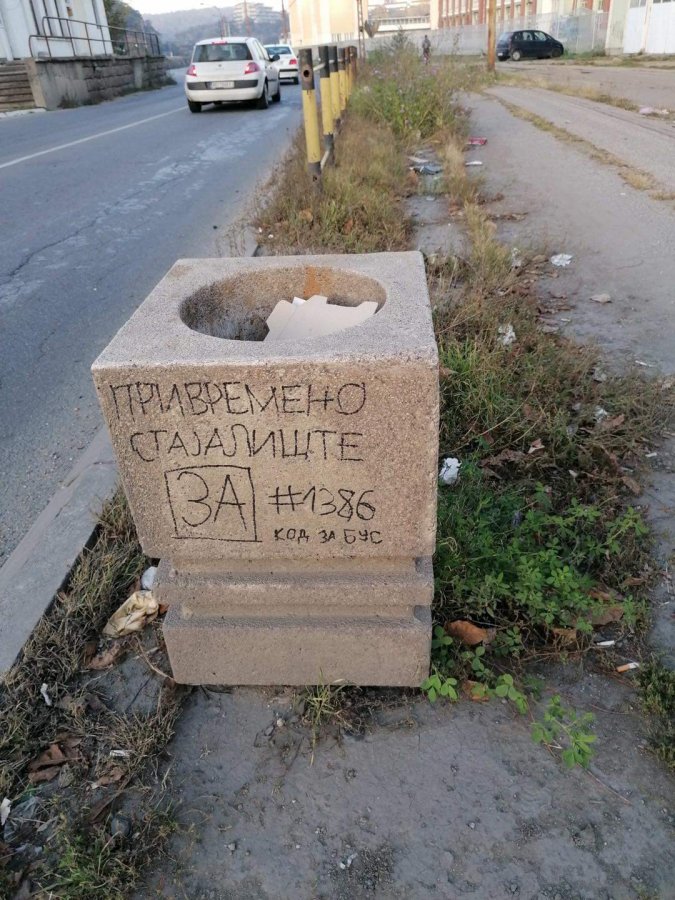 ПРИВРЕМЕНО
СТАЈАЛИШТЕ
ЗА #1386
КОД ЗА БУС